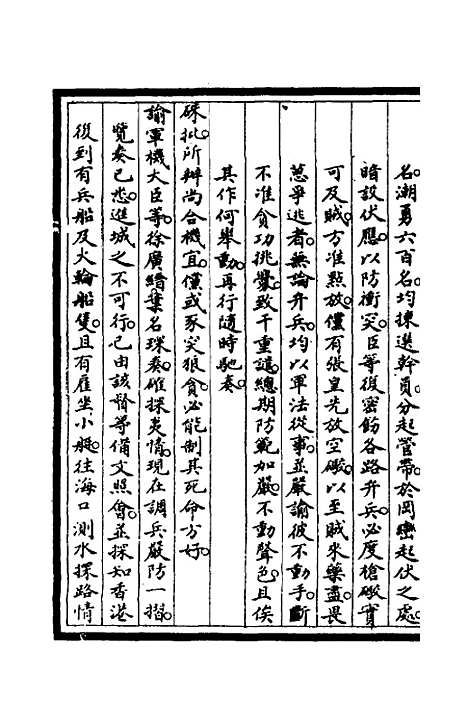 名潮勇六百名均揀選幹員分起管帶於岡巒起伏之處
暗設伏應以防衝突臣等復密飭各路弁兵必度槍礮實
可及賊方准點放儻有張皇先放空礮以至賊來藥盡畏
葸爭逃者無論弁兵均以軍法從事並嚴諭彼不動手斷
不准貪功挑釁致干重譴總期防範加嚴不動聲色且俟
其作何舉動再行隨時馳奏
硃批所辦尚合機宜儻或豕突狼貪必能制其死命方好
諭軍機大臣等徐廣縉葉名琛奏確探夷情現在調兵嚴防一摺
覽奏已悉進城之不可行已由該督等備文照會並探知香港
後到有兵船及火輪船隻且有雇坐小艇往海口測水探路情